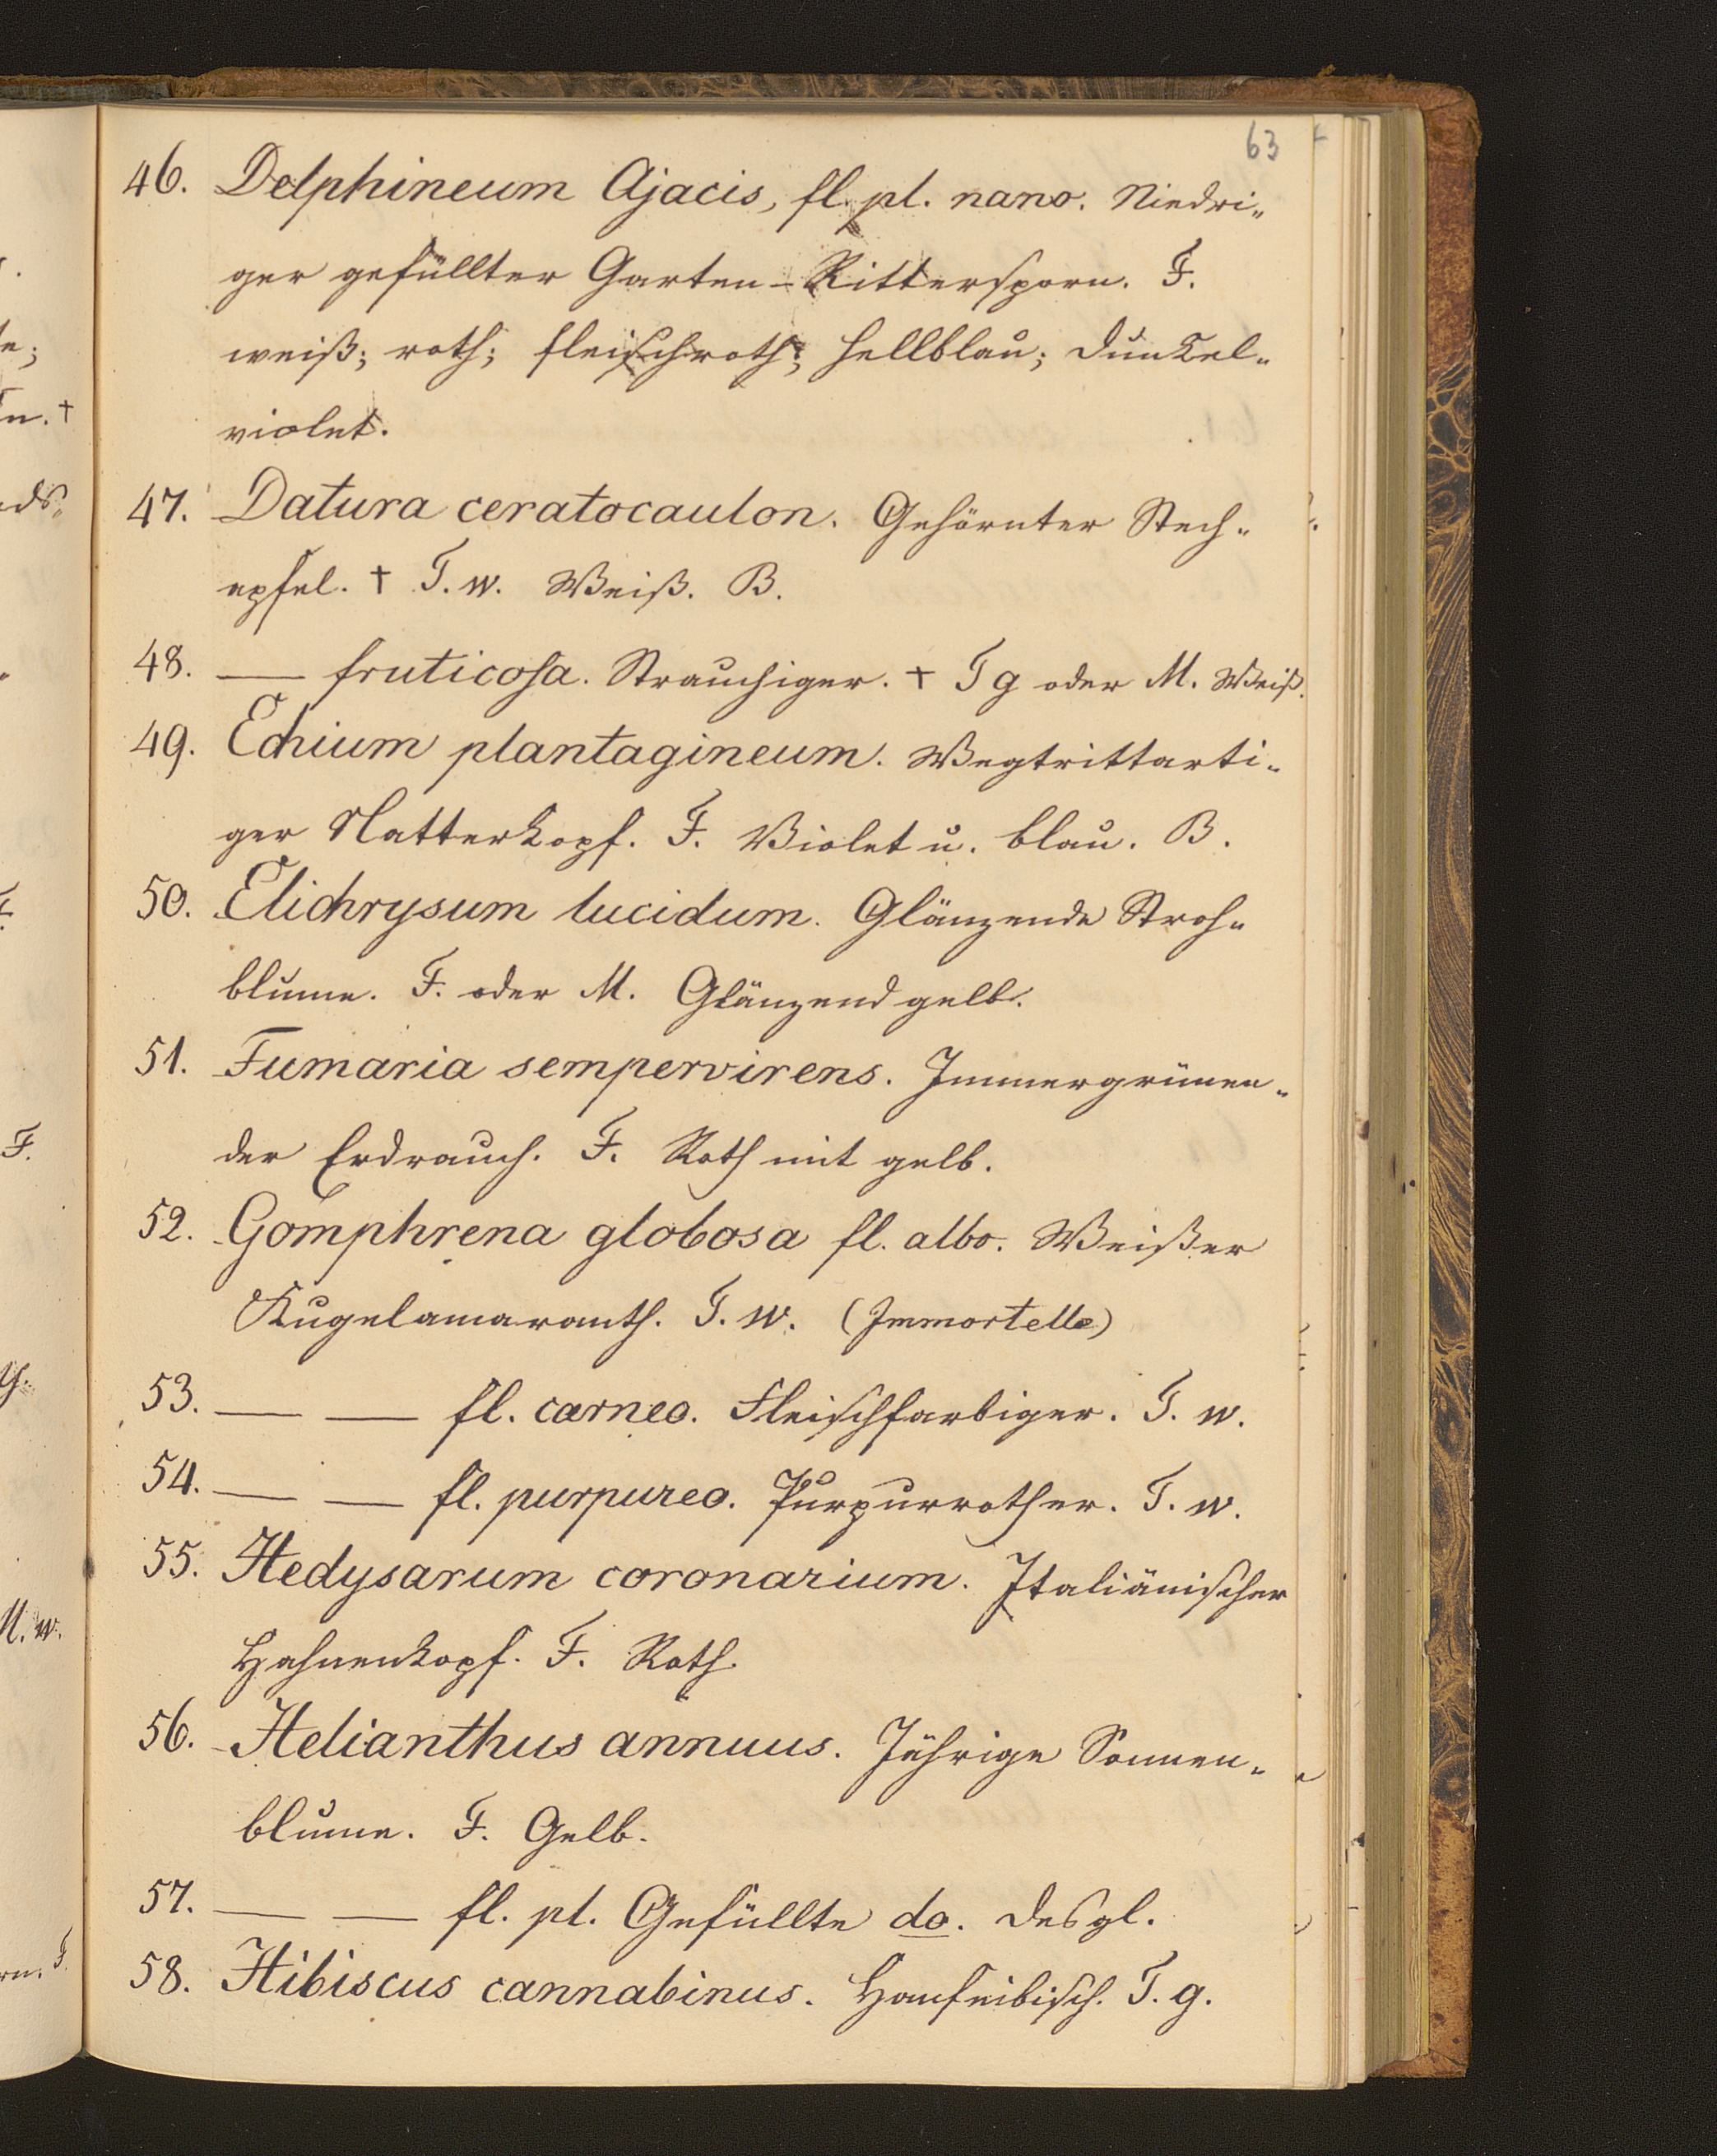 63
46. Delphineum Ajacis, fl. pl. nano. Niedri-
ger gefüllter Garten-Rittersporn. F.
weiß; roth; fleischroth; hellblau; dunkel-
violet.
47. Datura ceratocaulon. Gehörnter Stech-
apfel. † T. w. Weiß. B.
48. — fruticosa. Strauchiger. † T g oder M. Weiß.
49. Echium plantagineum. Wegtrittarti-
ger Natterkopf. F. Violet u. blau. B.
50. Elichrysum lucidum. Glänzende Stroh-
blume. F. oder M. Glänzend gelb.
51. Fumaria sempervirens. Immergrünen-
der Erdrauch. F. Roth mit gelb.
52. Gomphrena globosa fl. albo. Weißer
Kugelamaranth. T. w. (Immortelle)
53. — — fl. carneo. Fleischfarbiger. T. w.
54. — — fl. purpureo. Purpurrother. T. w.
55. Hedysarum coronarium. Italiänischer
Hahnenkopf. F. Roth.
56. Helianthus annuus. Jährige Sonnen-
blume. F. Gelb.
57. — — fl. pl. Gefüllte do. desgl.
58. Hibiscus cannabinus. Hanfeibisch. T. g.